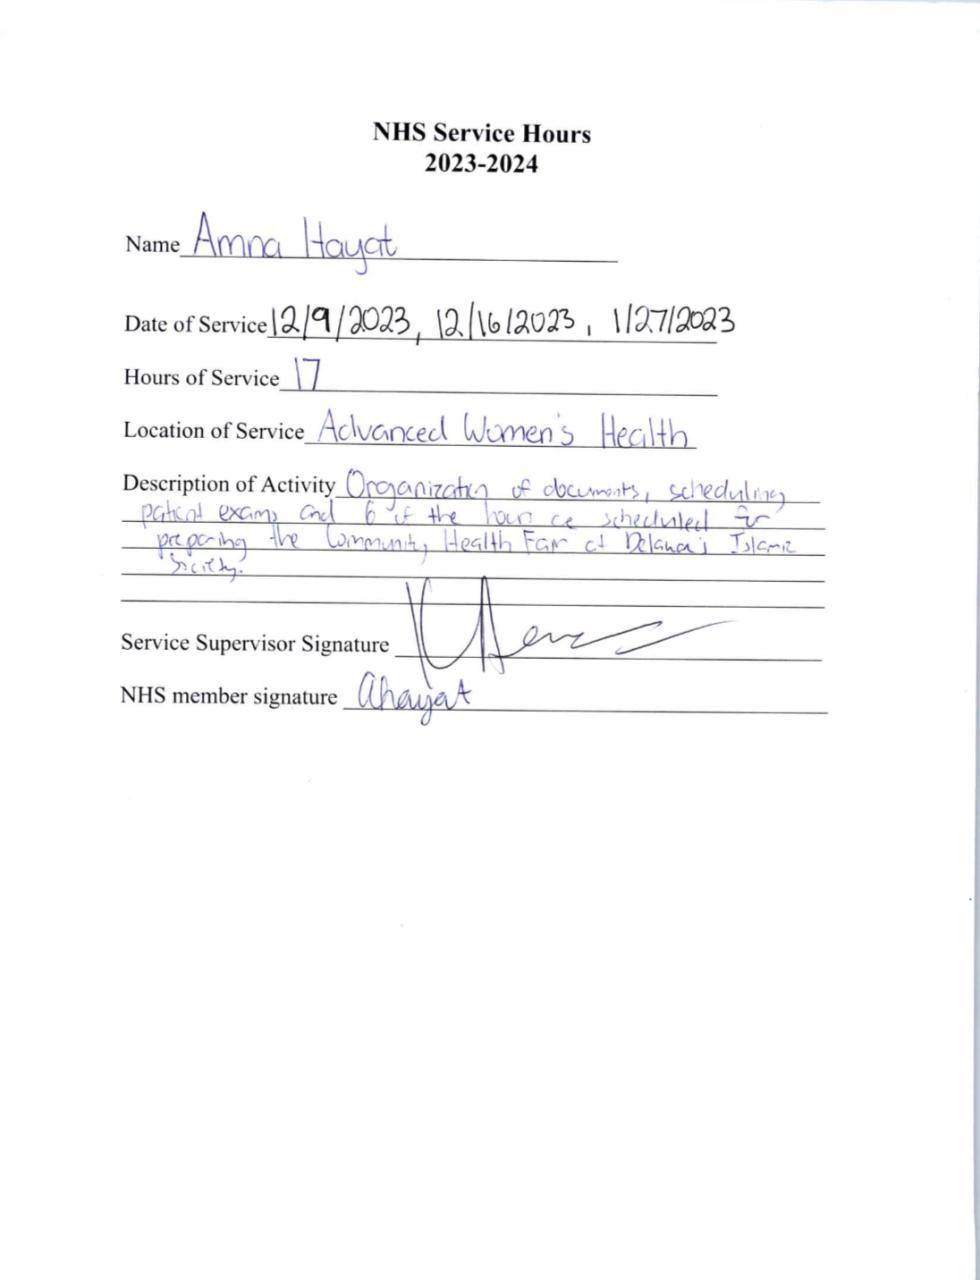 NHS Service Hours
2023-2024
Name Amna Hayat
Date of Service 12/9/2023, 12/16/2023, 1/27/2023
Hours of Service 17
Location of Service Advanced Women's Health
Description of Activity Organization of documents, scheduling
patient exams and 6 of the hour scheduled for
preparing the Community Health Fair at Islamic
Society.
Service Supervisor Signature
NHS member signature ahayat